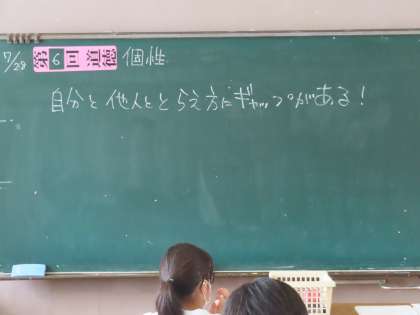 7/28 第6回道徳 個性
自分と他人ととらえ方にギャップがある!